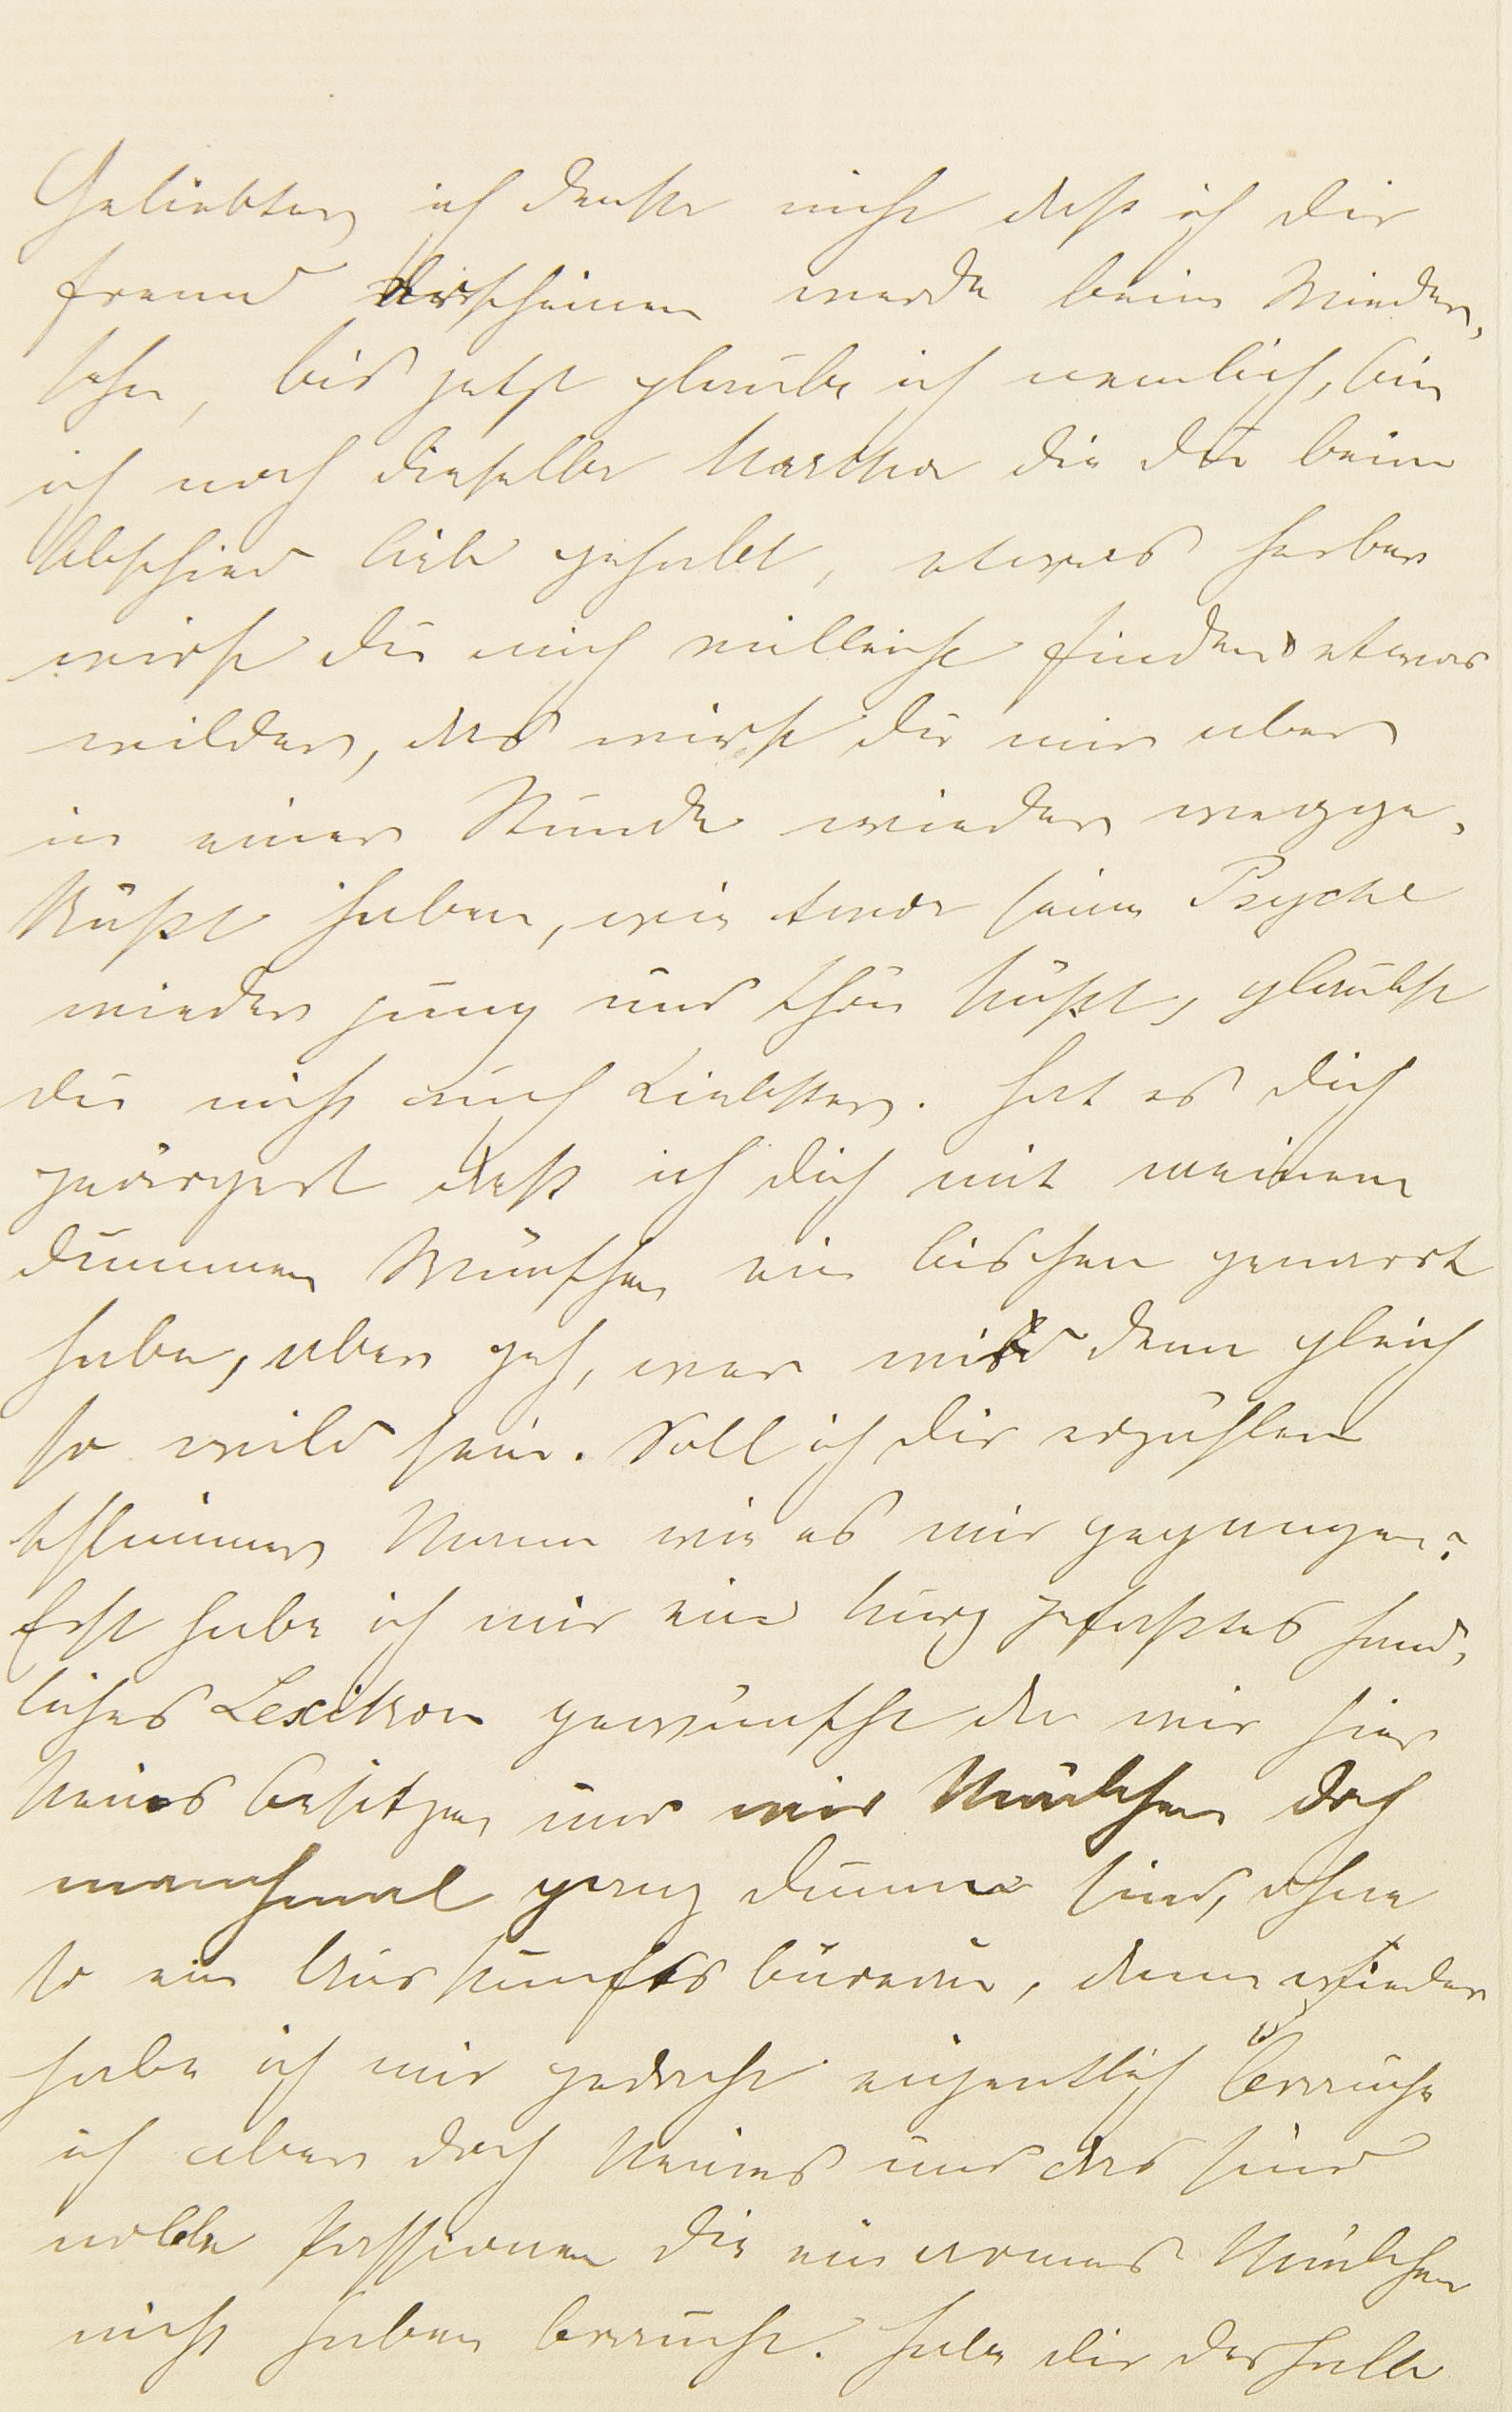 Geliebter, ich denke nicht daß ich dir
fremd erscheinen werde beim Wieder,
sehn, bis jetzt glaube ich nemlich, bin
ich noch dieselbe Martha die du beim
Abschied lieb gehabt, etwas herber
wirst du mich vielleicht finden etwas
wilder, das wirst du mir aber
in einer Stunde wieder wegge,
küßt haben, wie Amor seine Psyche
wieder jung und schön küßt, glaubst
du nicht auch Liebster. Hat es dich
geärgert daß ich dich mit meinem
dummen Wünschen ein bischen genarrt
habe, aber geh, wer wird denn gleich
so wild sein. Soll ich dir erzählen
schlimmer Mann wie es mir gegangen?
Erst habe ich mir ein kurz gefaßtes hand,
liches Lexikon gewünscht da wir hier
keines besitzen und wir Mädchen doch
manchmal ganz dumm sind, ohne
so ein Auskunftsbüreau, dann wieder
habe ich mir gedacht eigentlich brauche
ich aber doch keines und das sind
noble Passionen die ein armes Mädchen
nicht haben braucht. Habe dir deshalb